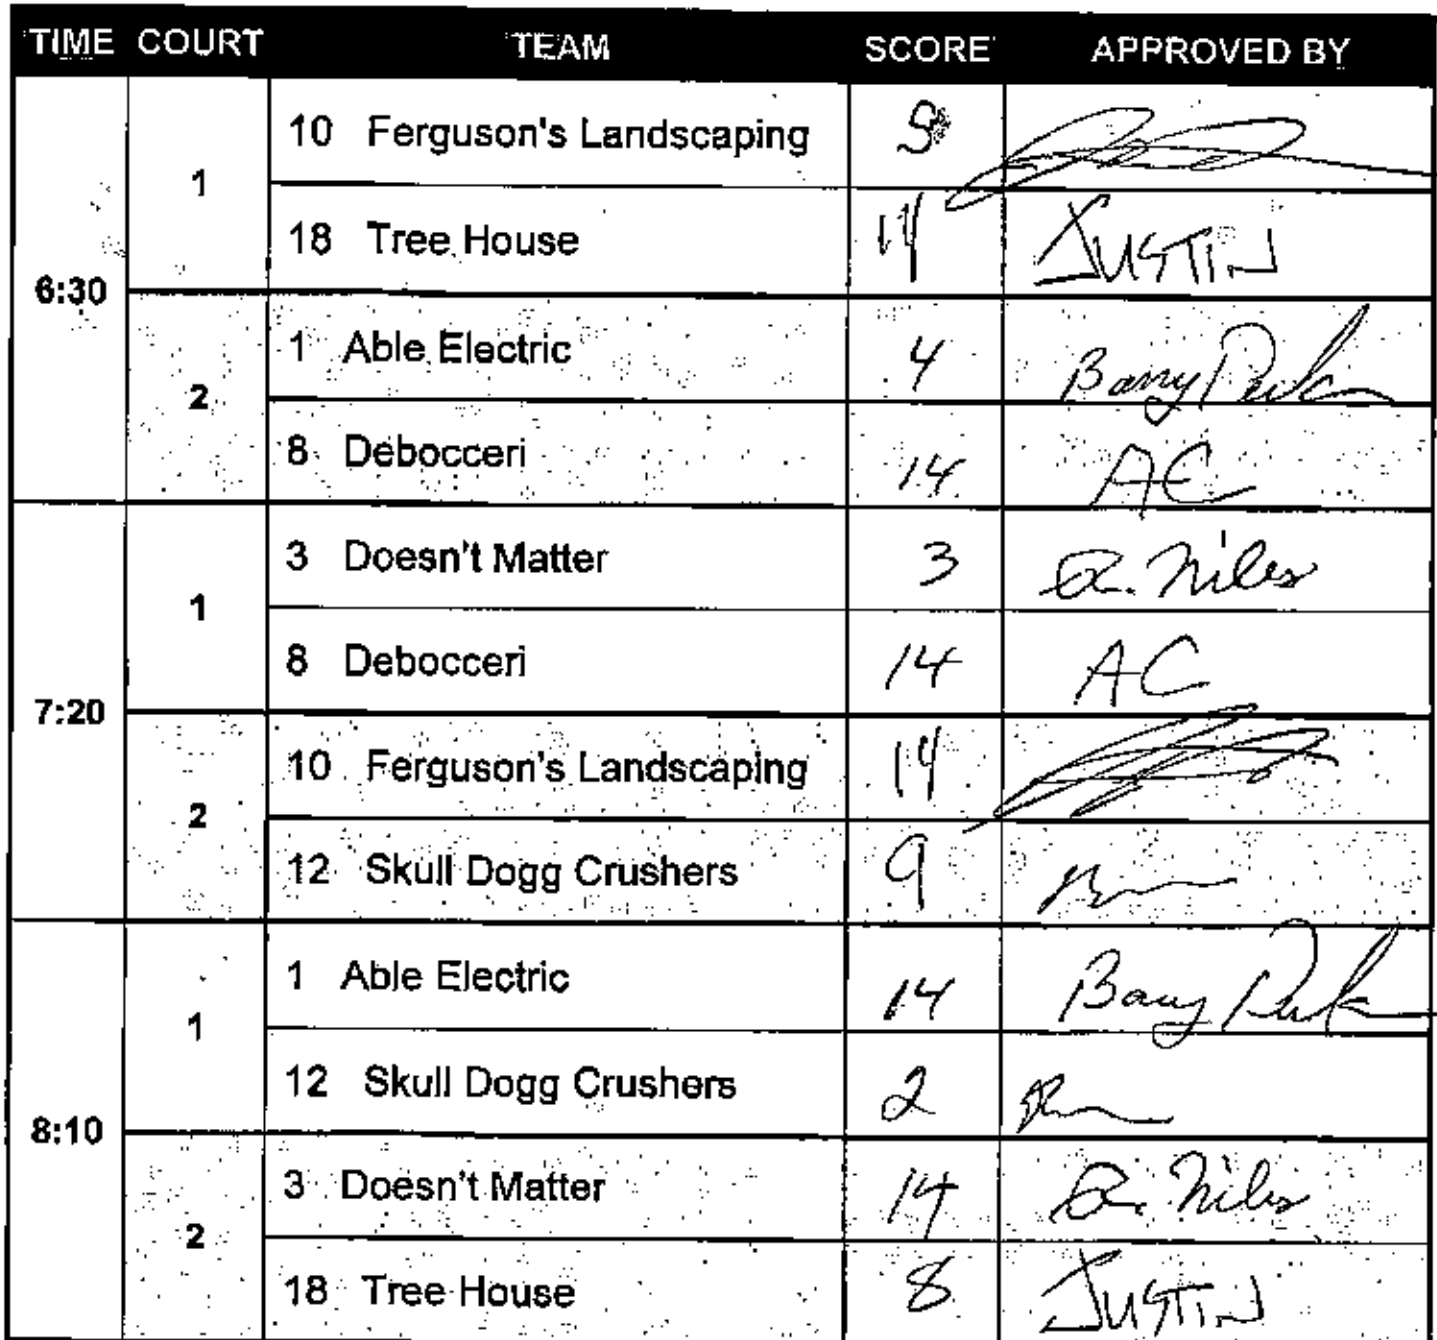 TIME COURT TEAM SCORE APPROVED BY
10 Ferguson's Landscaping
1
18 Tree House 14 JUSTIN
6:30
1 Able Electric 4 Barry
2
8 Debocceri 14 AC
3 Doesn't Matter 3 a. Niles
1
8 Debocceri 14 AC
7:20
10 Ferguson's Landscaping 14
2
12 Skull Dogg Crushers 9
1 Able Electric 14 Barry
1
12 Skull Dogg Crushers 2
8:10
3 Doesn't Matter 14 a. Niles
2
18 Tree House 8 JUSTIN